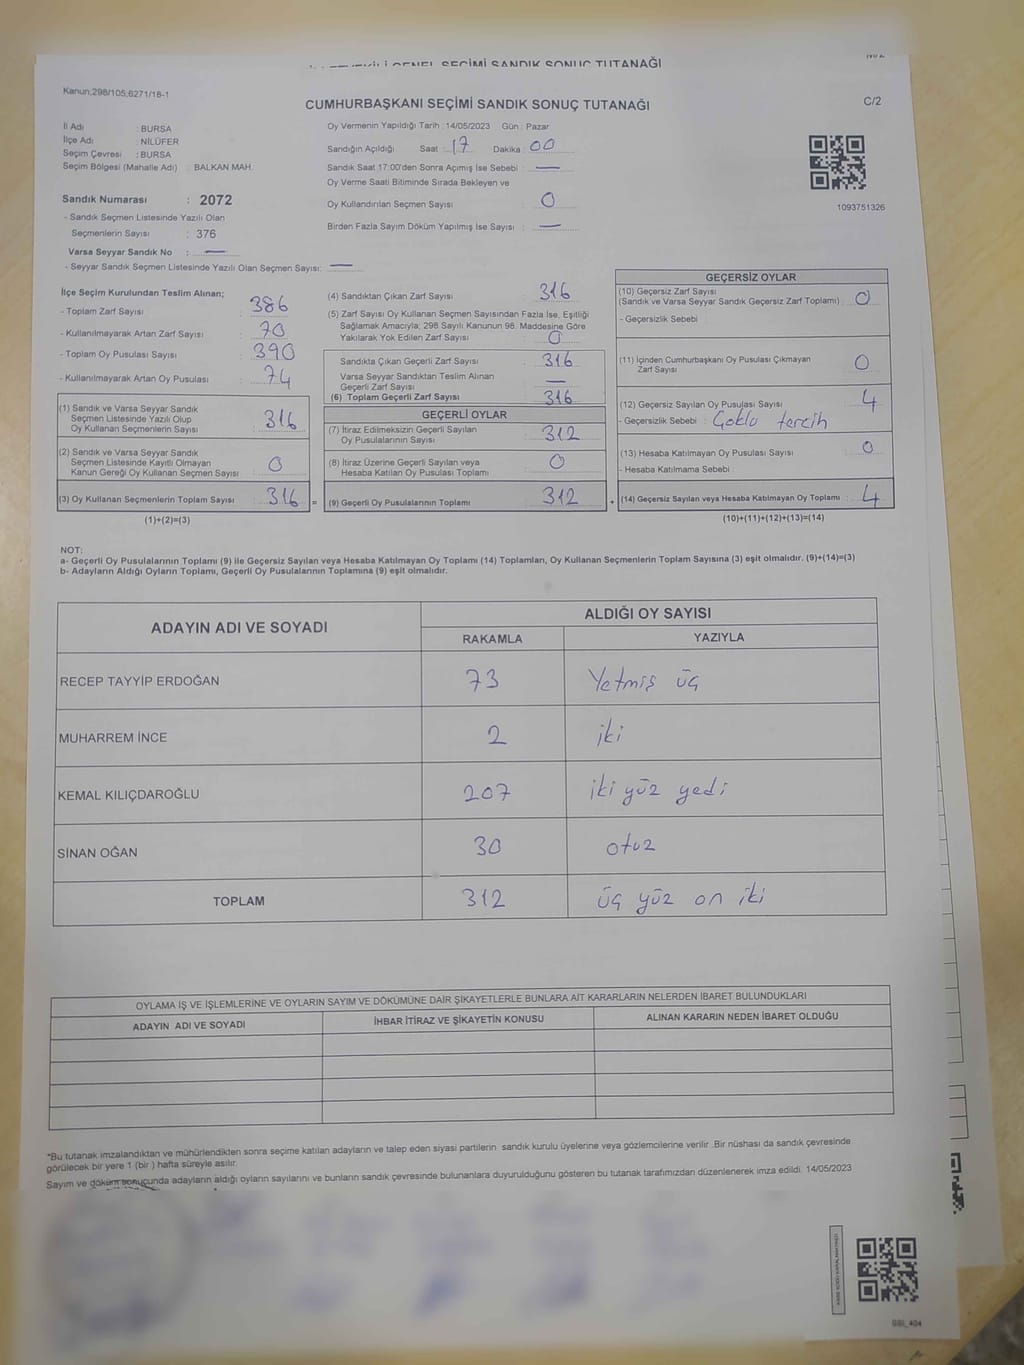 GENEL SEÇİMİ SANDIK SONUÇ TUTANAĞI
Kanun;298/105;6271/18-1
CUMHURBAŞKANI SEÇİMİ SANDIK SONUÇ TUTANAĞI
C/2
İl Adı : BURSA
İlçe Adı : NİLÜFER
Seçim Çevresi : BURSA
Seçim Bölgesi (Mahalle Adı) : BALKAN MAH.
Oy Vermenin Yapıldığı Tarih : 14/05/2023 Gün : Pazar
Sandığın Açıldığı Saat : 17 Dakika : 00
Sandık Saat 17:00'den Sonra Açımış İse Sebebi : —
Oy Verme Saati Bitiminde Sırada Bekleyen ve
Oy Kullandırılan Seçmen Sayısı : 0
Birden Fazla Sayım Döküm Yapılmış İse Sayısı : —
1093751326
Sandık Numarası : 2072
- Sandık Seçmen Listesinde Yazılı Olan
Seçmenlerin Sayısı : 376
Varsa Seyyar Sandık No : —
- Seyyar Sandık Seçmen Listesinde Yazılı Olan Seçmen Sayısı: —
İlçe Seçim Kurulundan Teslim Alınan;
- Toplam Zarf Sayısı : 386
- Kullanılmayarak Artan Zarf Sayısı : 70
- Toplam Oy Pusulası Sayısı : 390
- Kullanılmayarak Artan Oy Pusulası : 74
(1) Sandık ve Varsa Seyyar Sandık
Seçmen Listesinde Yazılı Olup
Oy Kullanan Seçmenlerin Sayısı : 316
(2) Sandık ve Varsa Seyyar Sandık
Seçmen Listesinde Kayıtlı Olmayan
Kanun Gereği Oy Kullanan Seçmen Sayısı : 0
(3) Oy Kullanan Seçmenlerin Toplam Sayısı : 316 =
(1)+(2)=(3)
(4) Sandıktan Çıkan Zarf Sayısı : 316
(5) Zarf Sayısı Oy Kullanan Seçmen Sayısından Fazla İse, Eşitliği
Sağlamak Amacıyla; 298 Sayılı Kanunun 98. Maddesine Göre
Yakılarak Yok Edilen Zarf Sayısı : 0
Sandıkta Çıkan Geçerli Zarf Sayısı : 316
Varsa Seyyar Sandıktan Teslim Alınan
Geçerli Zarf Sayısı : —
(6) Toplam Geçerli Zarf Sayısı : 316
GEÇERLİ OYLAR
(7) İtiraz Edilmeksizin Geçerli Sayılan
Oy Pusulalarının Sayısı : 312
(8) İtiraz Üzerine Geçerli Sayılan veya
Hesaba Katılan Oy Pusulası Toplamı : 0
(9) Geçerli Oy Pusulalarının Toplamı : 312 +
GEÇERSİZ OYLAR
(10) Geçersiz Zarf Sayısı
(Sandık ve Varsa Seyyar Sandık Geçersiz Zarf Toplamı) : 0
- Geçersizlik Sebebi :
(11) İçinden Cumhurbaşkanı Oy Pusulası Çıkmayan
Zarf Sayısı : 0
(12) Geçersiz Sayılan Oy Pusulası Sayısı : 4
- Geçersizlik Sebebi : Çoklu tercih
(13) Hesaba Katılmayan Oy Pusulası Sayısı : 0
- Hesaba Katılmama Sebebi :
(14) Geçersiz Sayılan veya Hesaba Katılmayan Oy Toplamı : 4
(10)+(11)+(12)+(13)=(14)
NOT:
a- Geçerli Oy Pusulalarının Toplamı (9) ile Geçersiz Sayılan veya Hesaba Katılmayan Oy Toplamı (14) Toplamları, Oy Kullanan Seçmenlerin Toplam Sayısına (3) eşit olmalıdır. (9)+(14)=(3)
b- Adayların Aldığı Oyların Toplamı, Geçerli Oy Pusulalarının Toplamına (9) eşit olmalıdır.
ADAYIN ADI VE SOYADI
ALDIĞI OY SAYISI
RAKAMLA YAZIYLA
RECEP TAYYİP ERDOĞAN 73 Yetmiş üç
MUHARREM İNCE 2 iki
KEMAL KILIÇDAROĞLU 207 iki yüz yedi
SİNAN OĞAN 30 otuz
TOPLAM 312 üç yüz on iki
OYLAMA İŞ VE İŞLEMLERİNE VE OYLARIN SAYIM VE DÖKÜMÜNE DAİR ŞİKAYETLERLE BUNLARA AİT KARARLARIN NELERDEN İBARET BULUNDUKLARI
ADAYIN ADI VE SOYADI İHBAR İTİRAZ VE ŞİKAYETİN KONUSU ALINAN KARARIN NEDEN İBARET OLDUĞU
*Bu tutanak imzalandıktan ve mühürlendikten sonra seçime katılan adayların ve talep eden siyasi partilerin sandık kurulu üyelerine veya gözlemcilerine verilir .Bir nüshası da sandık çevresinde
görülecek bir yere 1 (bir ) hafta süreyle asılır.
Sayım ve döküm sonucunda adayların aldığı oyların sayılarını ve bunların sandık çevresinde bulunanlara duyurulduğunu gösteren bu tutanak tarafımızdan düzenlenerek imza edildi. 14/05/2023
SSI_404